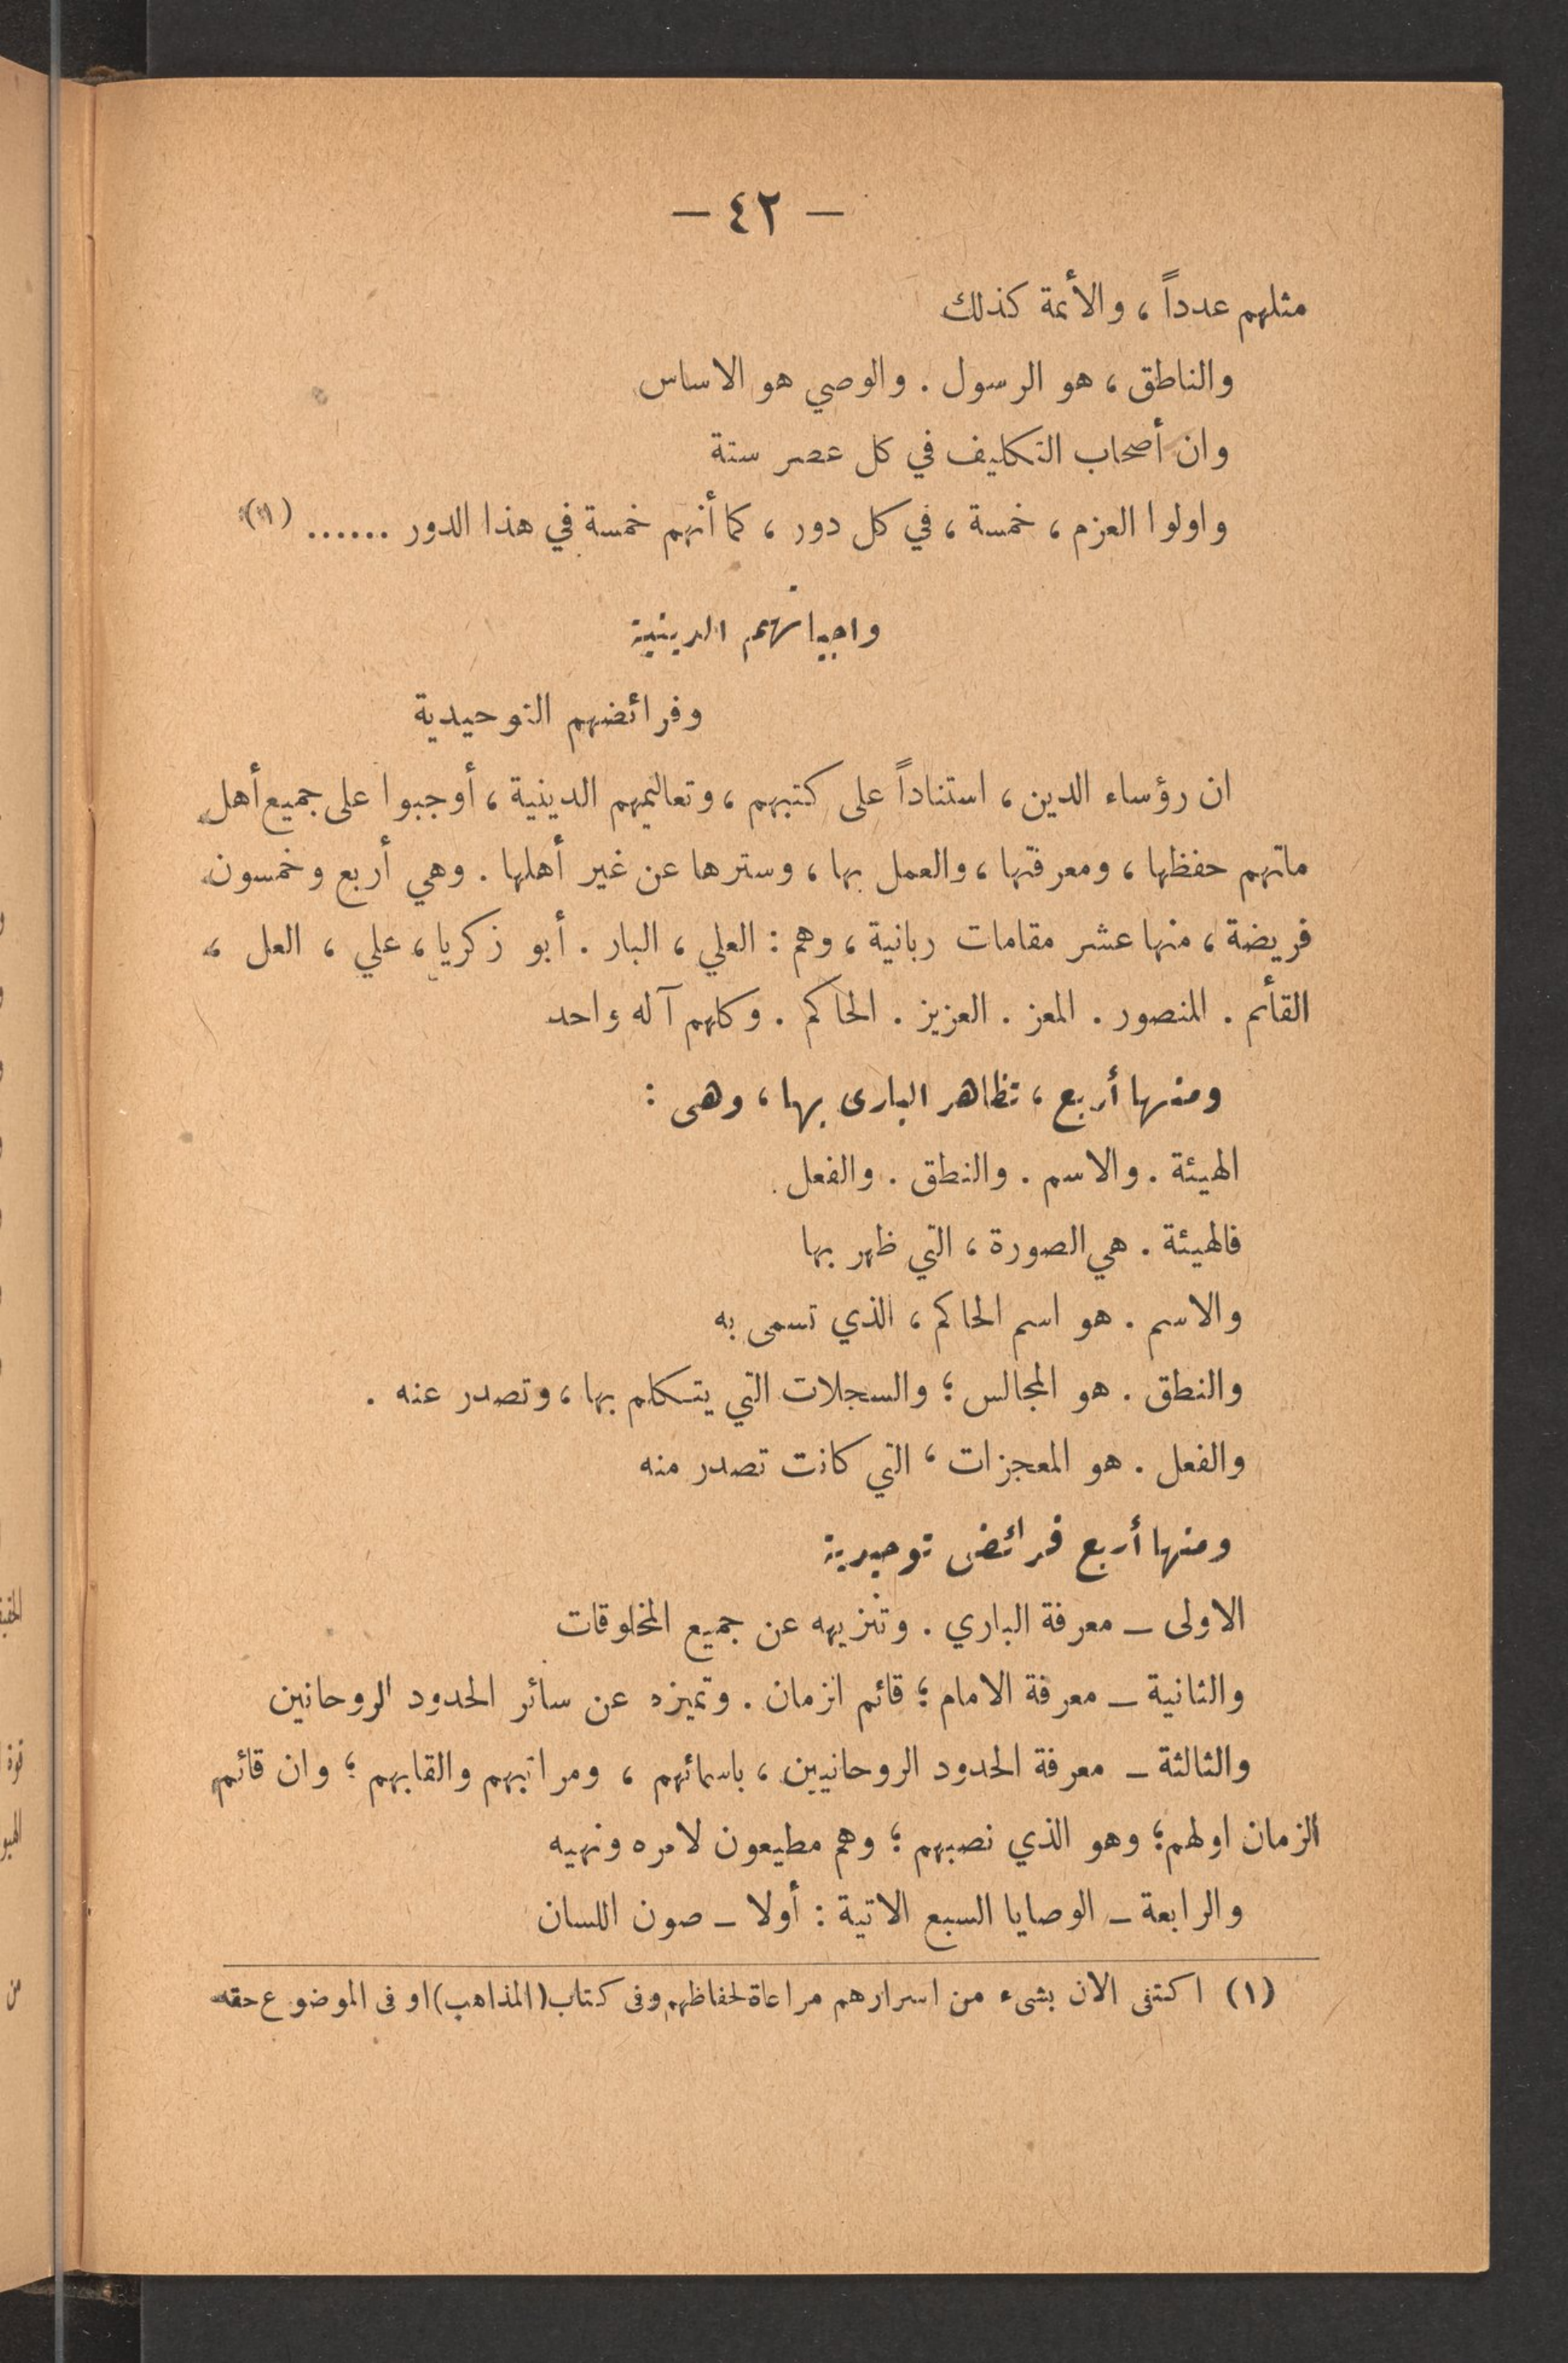 — ٤٢ —
مثلهم عدداً ، والأئمة كذلك
والناطق ، هو الرسول . والوصي هو الاساس
وان أصحاب التكليف في كل عصر ستة
واولوا العزم ، خمسة ، في كل دور ، كما أنهم خمسة في هذا الدور ...... (١)
واجباتهم الدينية
وفرائضهم التوحيدية
ان رؤساء الدين ، استناداً على كتبهم ، وتعاليمهم الدينية ، أوجبوا على جميع أهل
ملتهم حفظها ، ومعرفتها ، والعمل بها ، وسترها عن غير أهلها . وهي أربع وخمسون
فريضة ، منها عشر مقامات ربانية ، وهم : العلي ، البار . أبو زكريا ، علي ، العل ،
القأئم . المنصور . المعز . العزيز . الحاكم . وكلهم آله واحد
ومنها أربع ، تظاهر البارى بها ، وهى :
الهيئة . والاسم . والنطق . والفعل .
فالهيئة . هي الصورة ، التي ظهر بها
والاسم . هو اسم الحاكم ، الذي تسمى به
والنطق . هو المجالس ؛ والسجلات التي يتكلم بها ، وتصدر عنه .
والفعل . هو المعجزات ، التي كانت تصدر منه
ومنها أربع فرائض توحيدية
الاولى – معرفة الباري . وتنزيهه عن جميع المخلوقات
والثانية – معرفة الامام ؛ قائم الزمان . وتميزه عن سائر الحدود الروحانين
والثالثة – معرفة الحدود الروحانيين ، باسمائهم ، ومراتبهم والقابهم ؛ وان قائم
الزمان اولهم ؛ وهو الذي نصبهم ؛ وهم مطيعون لامره ونهيه
والرابعة – الوصايا السبع الاتية : أولا – صون اللسان
(١) اكتفى الان بشىء من اسرارهم مراعاة لحفاظهم وفى كتاب (المذاهب) اوفى الموضوع حقه